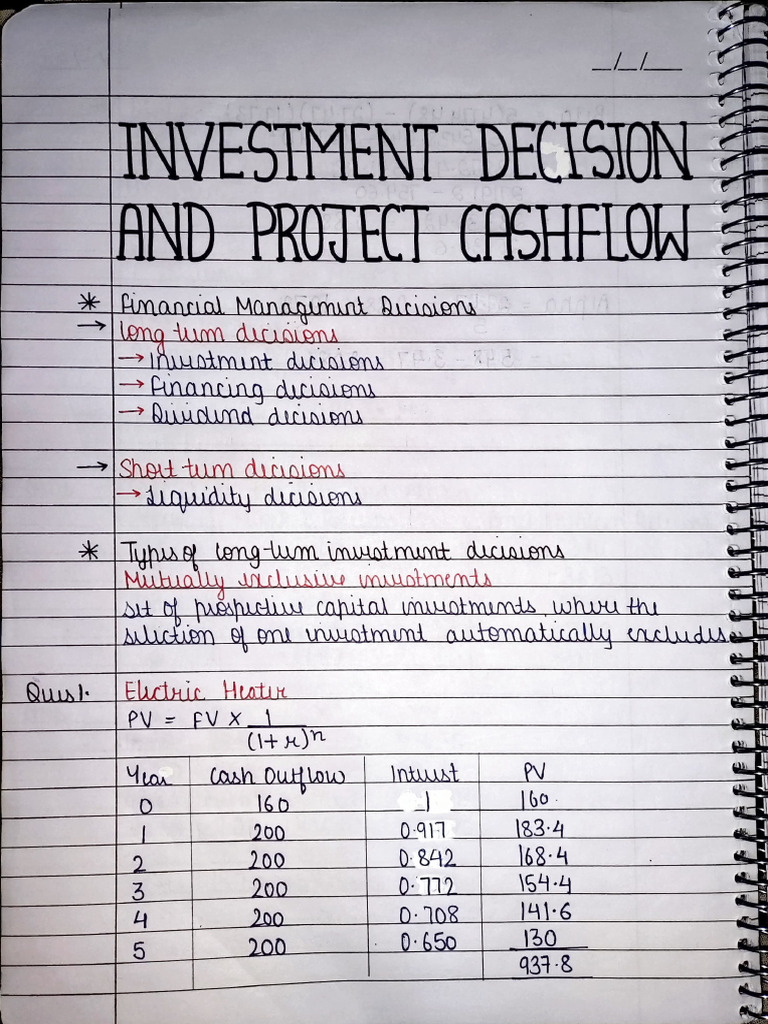 _/_/_
INVESTMENT DECISION
AND PROJECT CASHFLOW
* Financial Management Decisions
→ Long term decisions
→ Investment decisions
→ Financing decisions
→ Dividend decisions
→ Short term decisions
→ Liquidity decisions
* Types of long-term investment decisions
Mutually exclusive investments
set of prospective capital investments, where the
selection of one investment automatically excludes
Ques1. Electric Heater
PV = FV × 1/(1+r)^n
Year Cash Outflow Interest PV
0 160 1 160
1 200 0.917 183.4
2 200 0.842 168.4
3 200 0.772 154.4
4 200 0.708 141.6
5 200 0.650 130
937.8